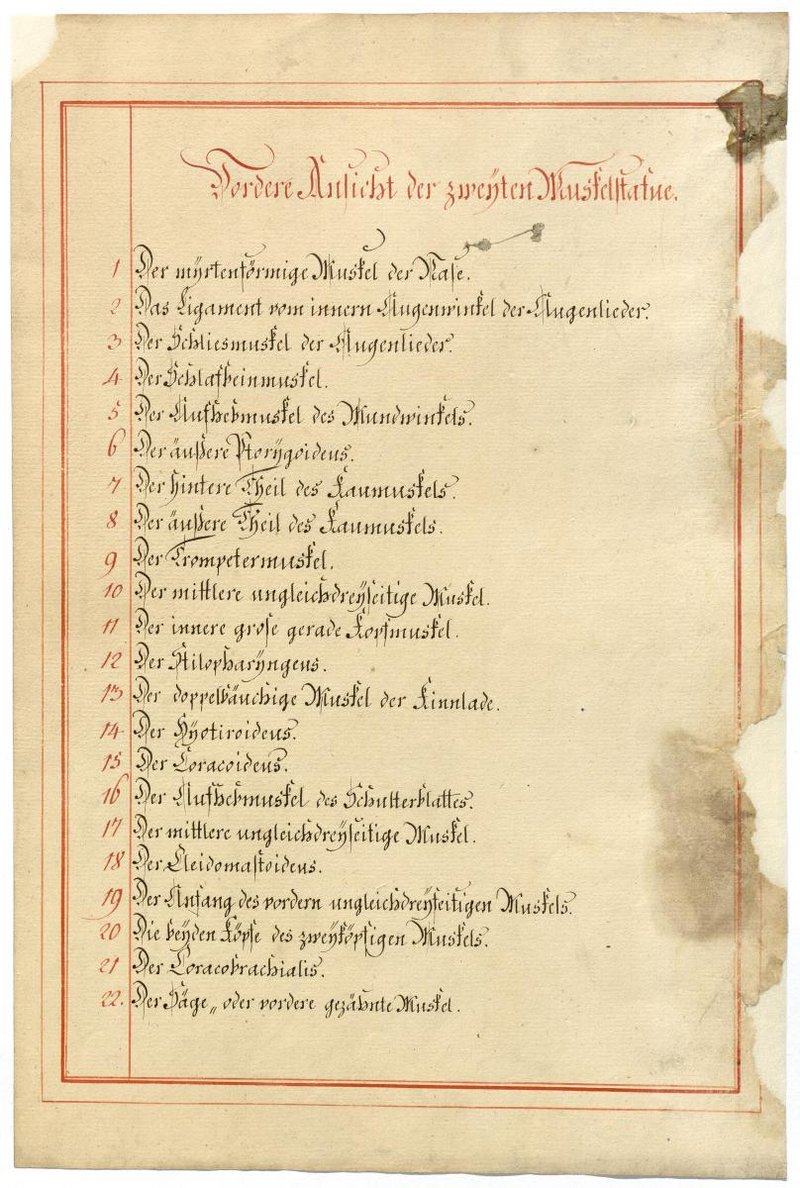 Vordere Ansicht der zweyten Muskelstatue.
1 Der myrtenförmige Muskel der Nase.
2 Das Ligament vom innern Augenwinkel der Augenlieder.
3 Der Schliesmuskel der Augenlieder.
4 Der Schlafbeinmuskel.
5 Der Aufhebmuskel des Mundwinkels.
6 Der äußere Pterÿgoideus.
7 Der hintere Theil des Kaumuskels.
8 Der äußere Theil des Kaumuskels.
9 Der Trompetermuskel.
10 Der mittlere ungleichdreyseitige Muskel.
11 Der innere grose gerade Kopfmuskel.
12 Der Stilopharÿngeus.
13 Der doppelbäuchige Muskel der Kinnlade.
14 Der Hÿotiroideus.
15 Der Coracoideus.
16 Der Aufhebmuskel des Schulterblattes.
17 Der mittlere ungleichdreyseitige Muskel.
18 Der Cleidomastoideus.
19 Der Anfang des vordern ungleichdreyseitigen Muskels.
20 Die beyden Köpfe des zweyköpfigen Muskels.
21 Der Coracobrachialis.
22. Der Säge„ oder vordere gezähnte Muskel.